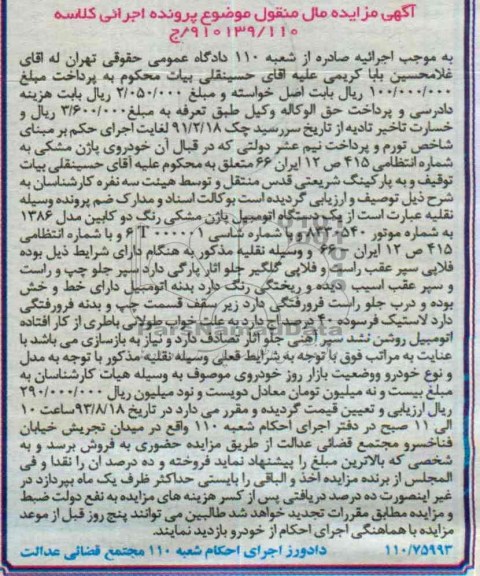 آگهی مزایده مال منقول موضوع پرونده اجرائی کلاسه
۹۱۰۱۳۹/۱۱۰/ج
به موجب اجرائیه صادره از شعبه ۱۱۰ دادگاه عمومی حقوقی تهران له اقای
غلامحسین بابا کریمی علیه اقای حسینقلی بیات محکوم به پرداخت مبلغ
۱۰۰/۰۰۰/۰۰۰ ریال بابت اصل خواسته و مبلغ ۲/۰۵۰/۰۰۰ ریال بابت هزینه
دادرسی و پرداخت حق الوکاله وکیل طبق تعرفه به مبلغ ۳/۶۰۰/۰۰۰ ریال و
خسارت تاخیر تادیه از تاریخ سررسید چک ۹۱/۲/۱۸ لغایت اجرای حکم بر مبنای
شاخص تورم و پرداخت نیم عشر دولتی که در قبال آن خودروی پاژن مشکی به
شماره انتظامی ۴۱۵ ص ۱۲ ایران ۶۶ متعلق به محکوم علیه آقای حسینقلی بیات
توقیف و به پارکینگ شریعتی قدس منتقل و توسط هیئت سه نفره کارشناسان به
شرح ذیل توصیف و ارزیابی گردیده است بوکالت اسناد و مدارک ضم پرونده وسیله
نقلیه عبارت است از یک دستگاه اتومبیل پاژن مشکی رنگ دو کابین مدل ۱۳۸۶
به شماره موتور ۸۳۳۰۵۴۰ و با شماره شاسی ۶T۰۰۰۰۰۱ و با شماره انتظامی
۴۱۵ ص ۱۲ ایران - ۶۶ و وسیله نقلیه مذکور به هنگام دارای شرایط ذیل بوده
فلاپی سپر عقب راست و فلاپی گلگیر جلو اثار پارگی دارد سپر جلو چپ و راست
و سپر عقب اسیب دیده و ریختگی رنگ دارد بدنه اتومبیل دارای خط و خش
بوده و درب جلو راست فرورفتگی دارد زیر سقف قسمت چپ و بدنه فرورفتگی
دارد لاستیک فرسوده ۴۰ درصد دارد به علت خواب طولانی باطری از کار افتاده
اتومبیل روشن نشد سپر اهنی جلو اثار تصادف دارد و نیاز به بازسازی می باشد با
عنایت به مراتب فوق با توجه به شرایط فعلی وسیله نقلیه مذکور با توجه به مدل
و نوع خودرو ووضعیت بازار روز خودروی موصوف به وسیله هیات کارشناسان به
مبلغ بیست و نه میلیون تومان معادل دویست و نود میلیون ریال ۲۹۰/۰۰۰/۰۰۰
ریال ارزیابی و تعیین قیمت گردیده و مقرر می دارد در تاریخ ۹۳/۸/۱۸ ساعت ۱۰
الی ۱۱ صبح در دفتر اجرای احکام شعبه ۱۱۰ واقع در میدان تجریش خیابان
فناخسرو مجتمع قضائی عدالت از طریق مزایده حضوری به فروش برسد و به
شخصی که بالاترین مبلغ را پیشنهاد نماید فروخته و ده درصد ان را نقدا و فی
المجلس از برنده مزایده اخذ و الباقی را بایستی حداکثر ظرف یک ماه بپردازد در
غیر اینصورت ده درصد دریافتی پس از کسر هزینه های مزایده به نفع دولت ضبط
و مزایده مطابق مقررات تجدید خواهد شد طالبین می توانند پنج روز قبل از موعد
مزایده با هماهنگی اجرای احکام از خودرو بازدید نمایند.
۱۱۰/۷۵۹۹۳ دادورز اجرای احکام شعبه ۱۱۰ مجتمع قضائی عدالت